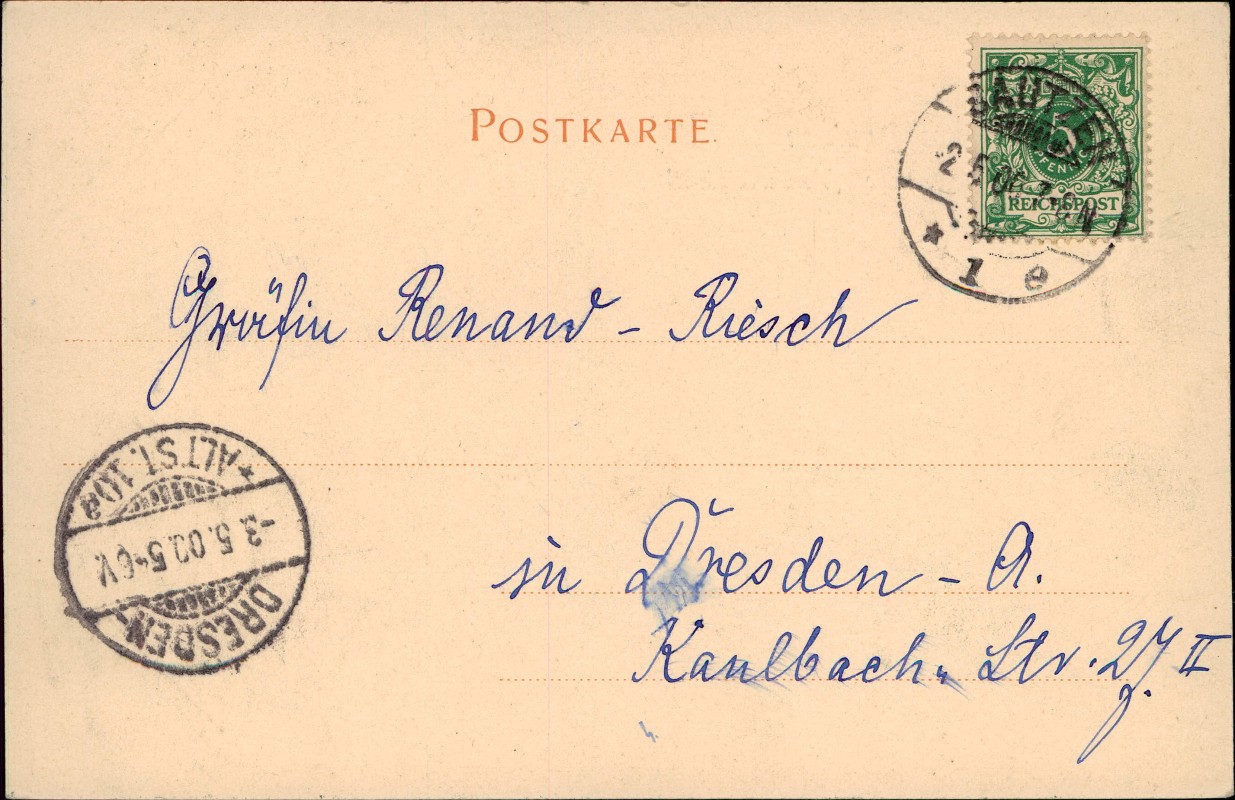 POSTKARTE.
BAUTZEN
2 5 00 7-8 N
* 1 e
5
PFENNIG
REICHSPOST
Gräfin Renand - Riesch
* ALTST. 10a
-3.5.00.5-6V.
DRESDEN-
in Dresden - A.
Kaulbach- Str. 27 II